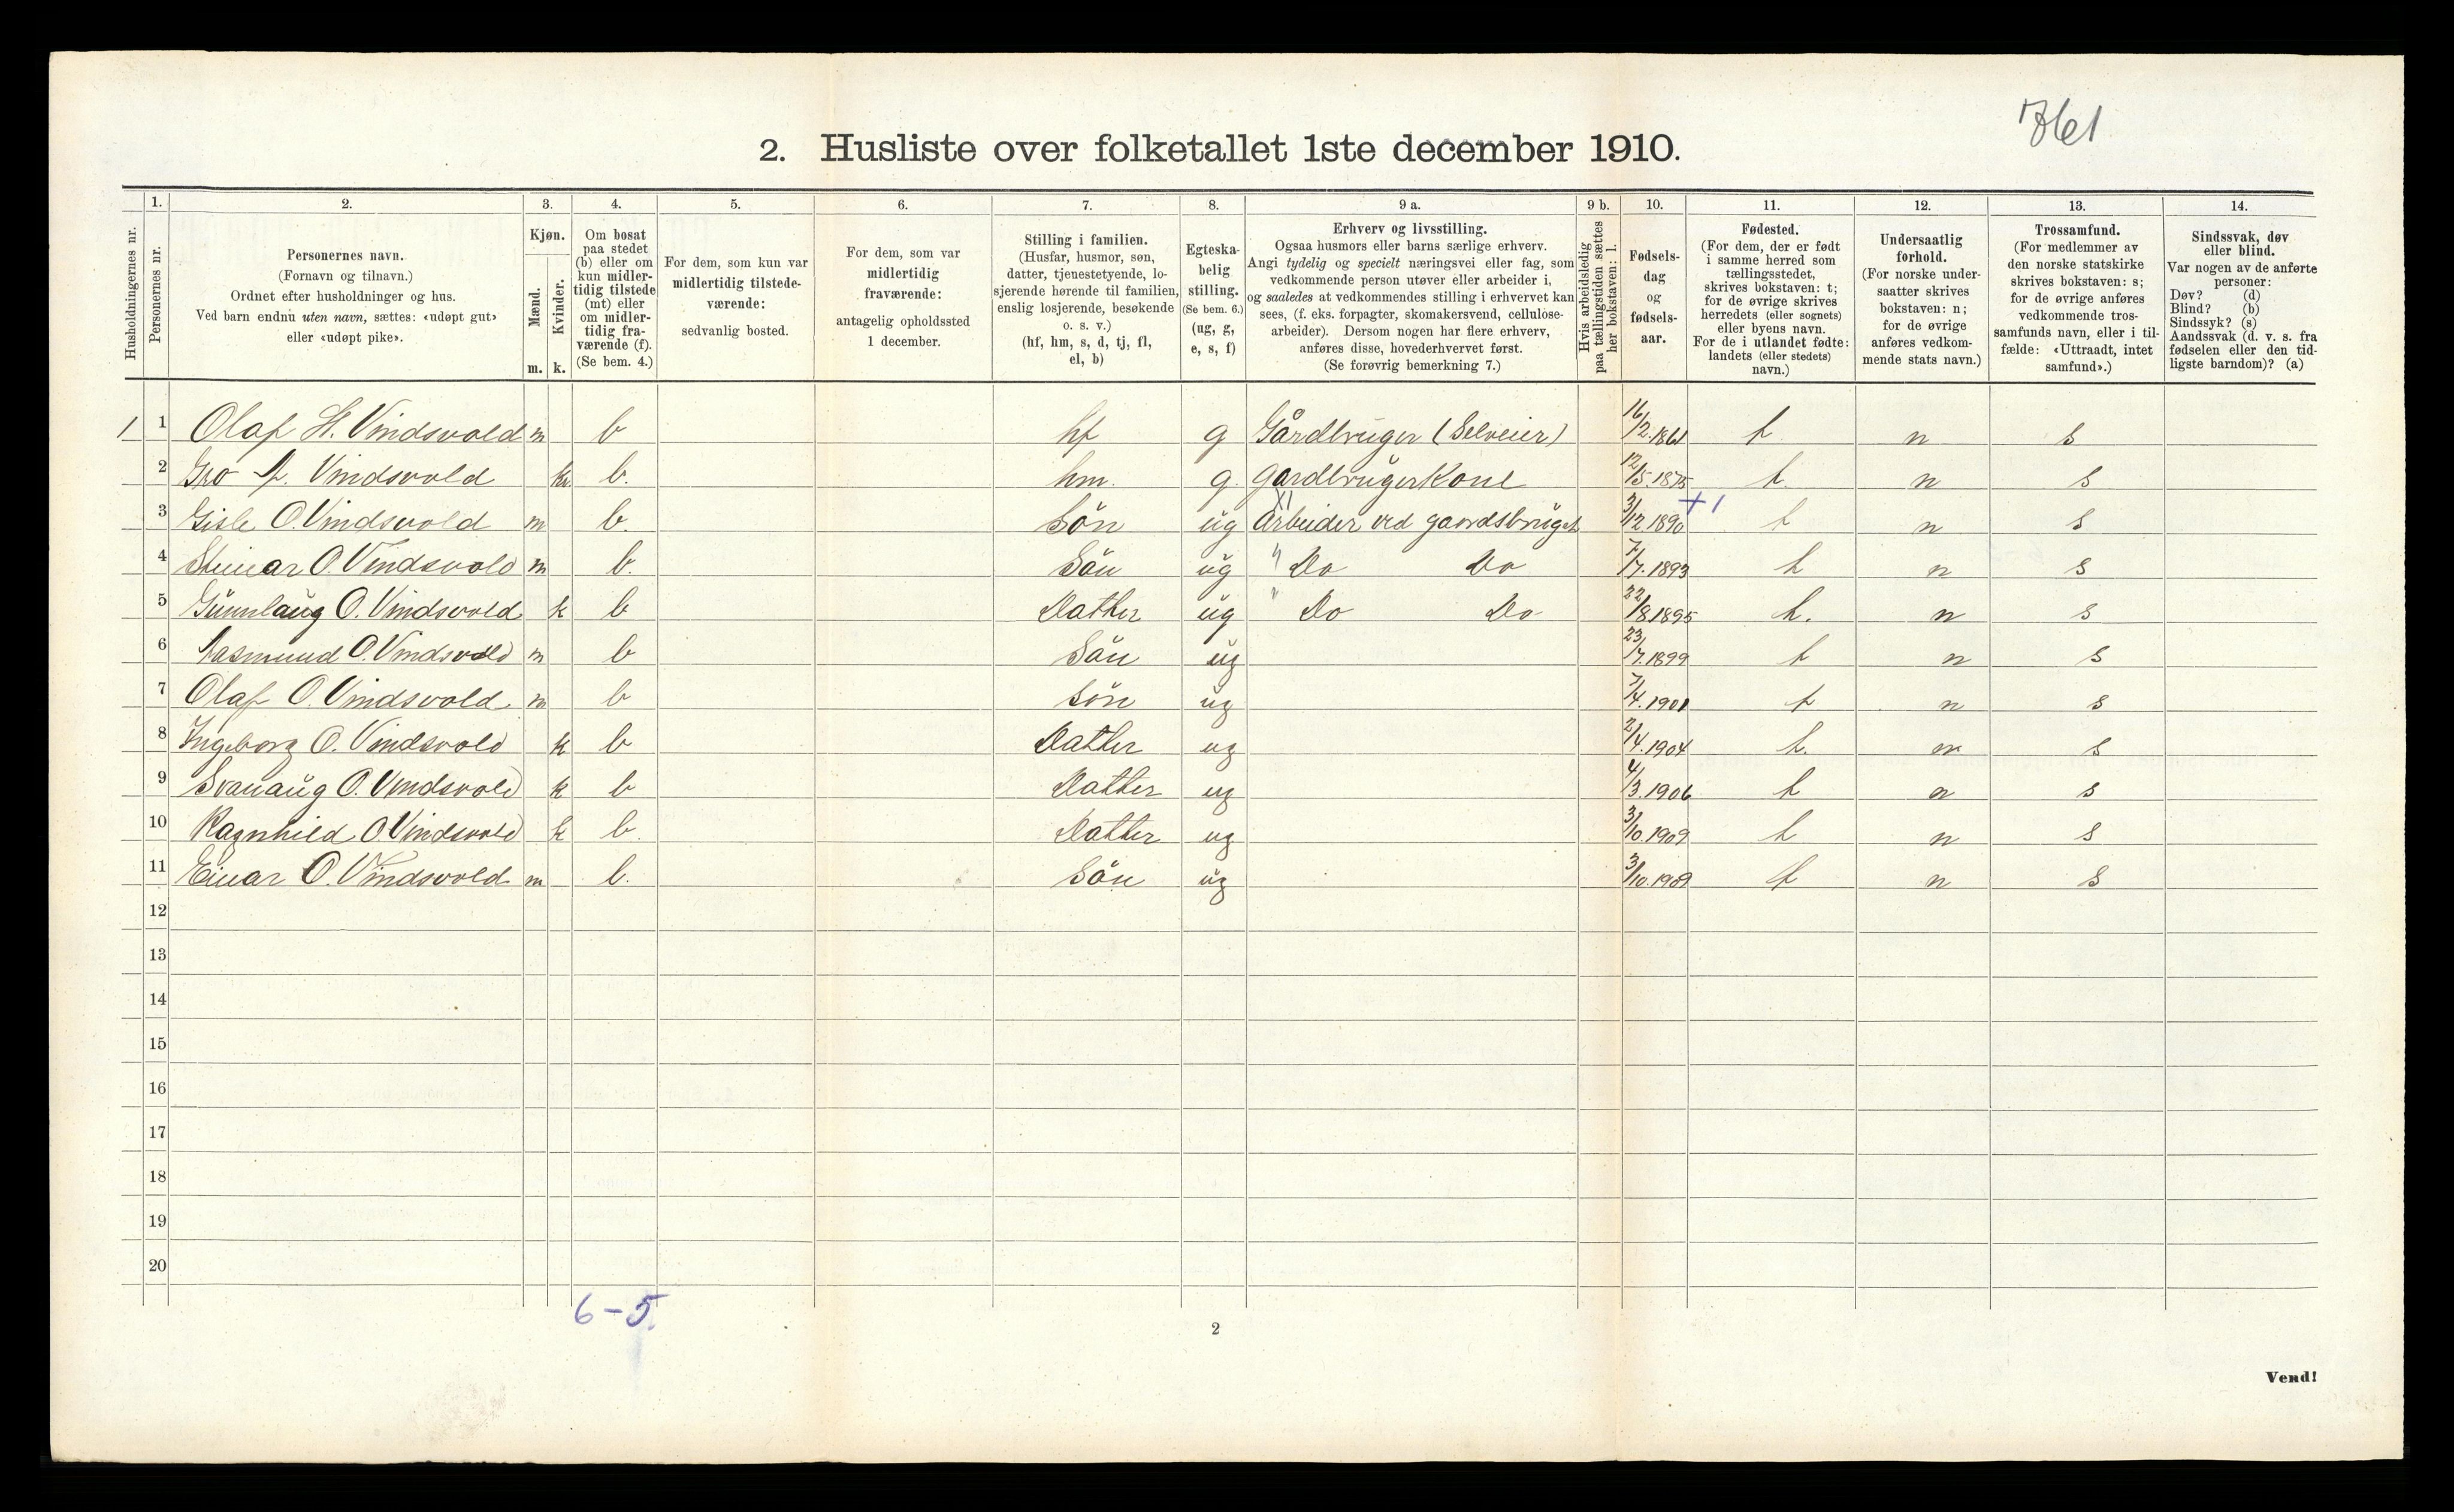 361
2. Husliste over folketallet 1ste december 1910.
Husholdningernes nr.
1.
Personernes nr.
2.
Personernes navn.
(Fornavn og tilnavn.)
Ordnet efter husholdninger og hus.
Ved barn endnu uten navn, sættes: «udøpt gut»
eller «udøpt pike».
3.
Kjøn.
Mænd.
Kvinder.
m. k.
4.
Om bosat
paa stedet
(b) eller om
kun midler-
tidig tilstede
(mt) eller
om midler-
tidig fra-
værende (f).
(Se bem. 4.)
5.
For dem, som kun var
midlertidig tilstede-
værende:
sedvanlig bosted.
6.
For dem, som var
midlertidig
fraværende:
antagelig opholdssted
1 december.
7.
Stilling i familien.
(Husfar, husmor, søn,
datter, tjenestetyende, lo-
sjerende hørende til familien,
enslig losjerende, besøkende
o. s. v.)
(hf, hm, s, d, tj, fl,
el, b)
8.
Egteska-
belig
stilling.
(Se bem. 6.)
(ug, g,
e, s, f)
9 a.
Erhverv og livsstilling.
Ogsaa husmors eller barns særlige erhverv.
Angi tydelig og specielt næringsvei eller fag, som
vedkommende person utøver eller arbeider i,
og saaledes at vedkommendes stilling i erhvervet kan
sees, (f. eks. forpagter, skomakersvend, cellulose-
arbeider). Dersom nogen har flere erhverv,
anføres disse, hovederhvervet først.
(Se forøvrig bemerkning 7.)
9 b.
Hvis arbeidsledig
paa tællingstiden sættes
her bokstaven: l.
10.
Fødsels-
dag
og
fødsels-
aar.
11.
Fødested.
(For dem, der er født
i samme herred som
tællingsstedet,
skrives bokstaven: t;
for de øvrige skrives
herredets (eller sognets)
eller byens navn.
For de i utlandet fødte:
landets (eller stedets)
navn.)
12.
Undersaatlig
forhold.
(For norske under-
saatter skrives
bokstaven: n;
for de øvrige
anføres vedkom-
mende stats navn.)
13.
Trossamfund.
(For medlemmer av
den norske statskirke
skrives bokstaven: s;
for de øvrige anføres
vedkommende tros-
samfunds navn, eller i til-
fælde: «Uttraadt, intet
samfund».)
14.
Sindssvak, døv
eller blind.
Var nogen av de anførte
personer:
Døv? (d)
Blind? (b)
Sindssyk? (s)
Aandssvak (d. v. s. fra
fødselen eller den tid-
ligste barndom)? (a)
1 1 Olaf H. Vindsvold m b hf g Gårdbruger (Selveier) 16/2.1861 t n s
2 Gro A. Vindsvold k b. hm. g. gardbrugerkone 12/5.1875 t. n s
3 Gisle O. Vindsvold m b. Sön ug Arbeider ved gaardsbruget 3/12.1890 t n s
4 Steinar O. Vindsvold m b. Sön ug " Do Do 7/7.1893 t n s
5 Gunnlaug O. Vindsvold k b Datter ug " Do Do 22/8.1895 t. n s
6 Aasmund O. Vindsvold m b Sön ug 23/7.1899 t n s
7 Olaf O. Vindsvold m b sön ug 7/4.1901 t n s
8 Ingeborg O. Vindsvold k b Datter ug 2/4.1904 t. n s
9 Svanaug O. Vindsvold k b Datter ug 4/3.1906 t n s
10 Ragnhild O. Vindsvold k b. Datter ug 3/10.1909 t n s
11 Einar O. Vindsvold m b. Sön ug 3/10.1909 t n s
12
13
14
15
16
17
18
19
20
6-5.
2
Vend!